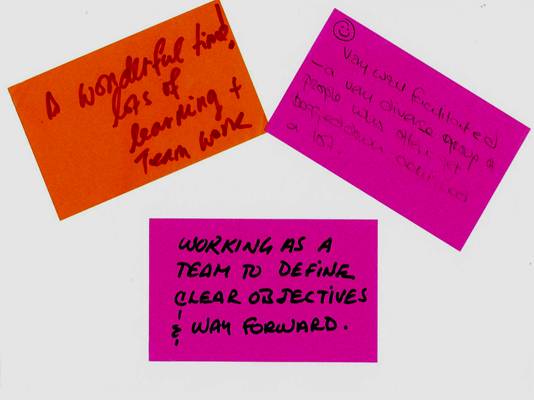 A wonderful time!
lots of
learning +
Team work
Very well facilitated
- a very diverse group of
people who often get
bogged down
a lot
WORKING AS A
TEAM TO DEFINE
CLEAR OBJECTIVES
& WAY FORWARD.